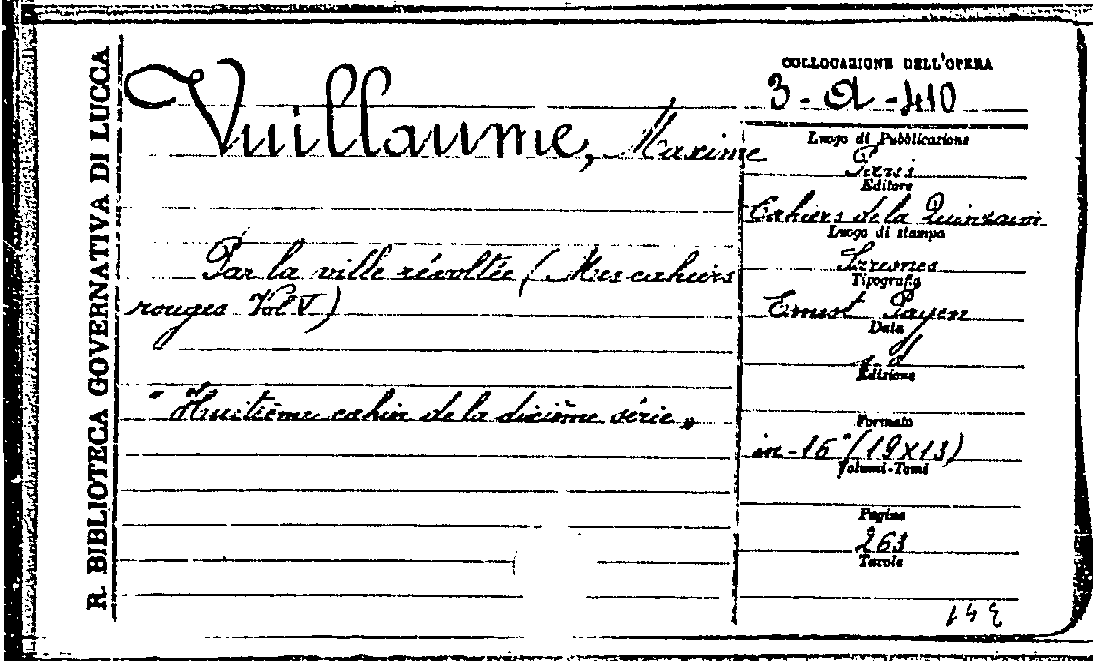 R. BIBLIOTECA GOVERNATIVA DI LUCCA
Vuillaume, Maxime
Par la ville révoltée (Mes cahiers
rouges Vol V)
"Huitième cahier de la dixième série"
COLLOCAZIONE DELL'OPERA
3-a-410
Luogo di Pubblicazione
Paris
Editore
Cahiers de la Quinzaine
Luogo di stampa
Suresnes
Tipografia
Ernest Payen
Data
s.d
Edizione
Formato
in-16° (19x13)
Volumi-Tomi
Pagine
263
Tavole